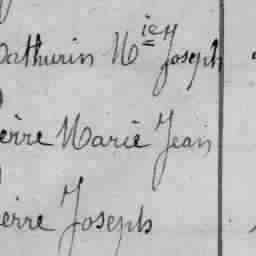 athurin M^ie Joseph
ierre Marie Jean
ierre Joseph